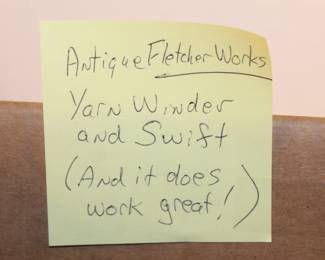 Antique Fletcher Works
Yarn Winder
and Swift
(And it does
work great!)